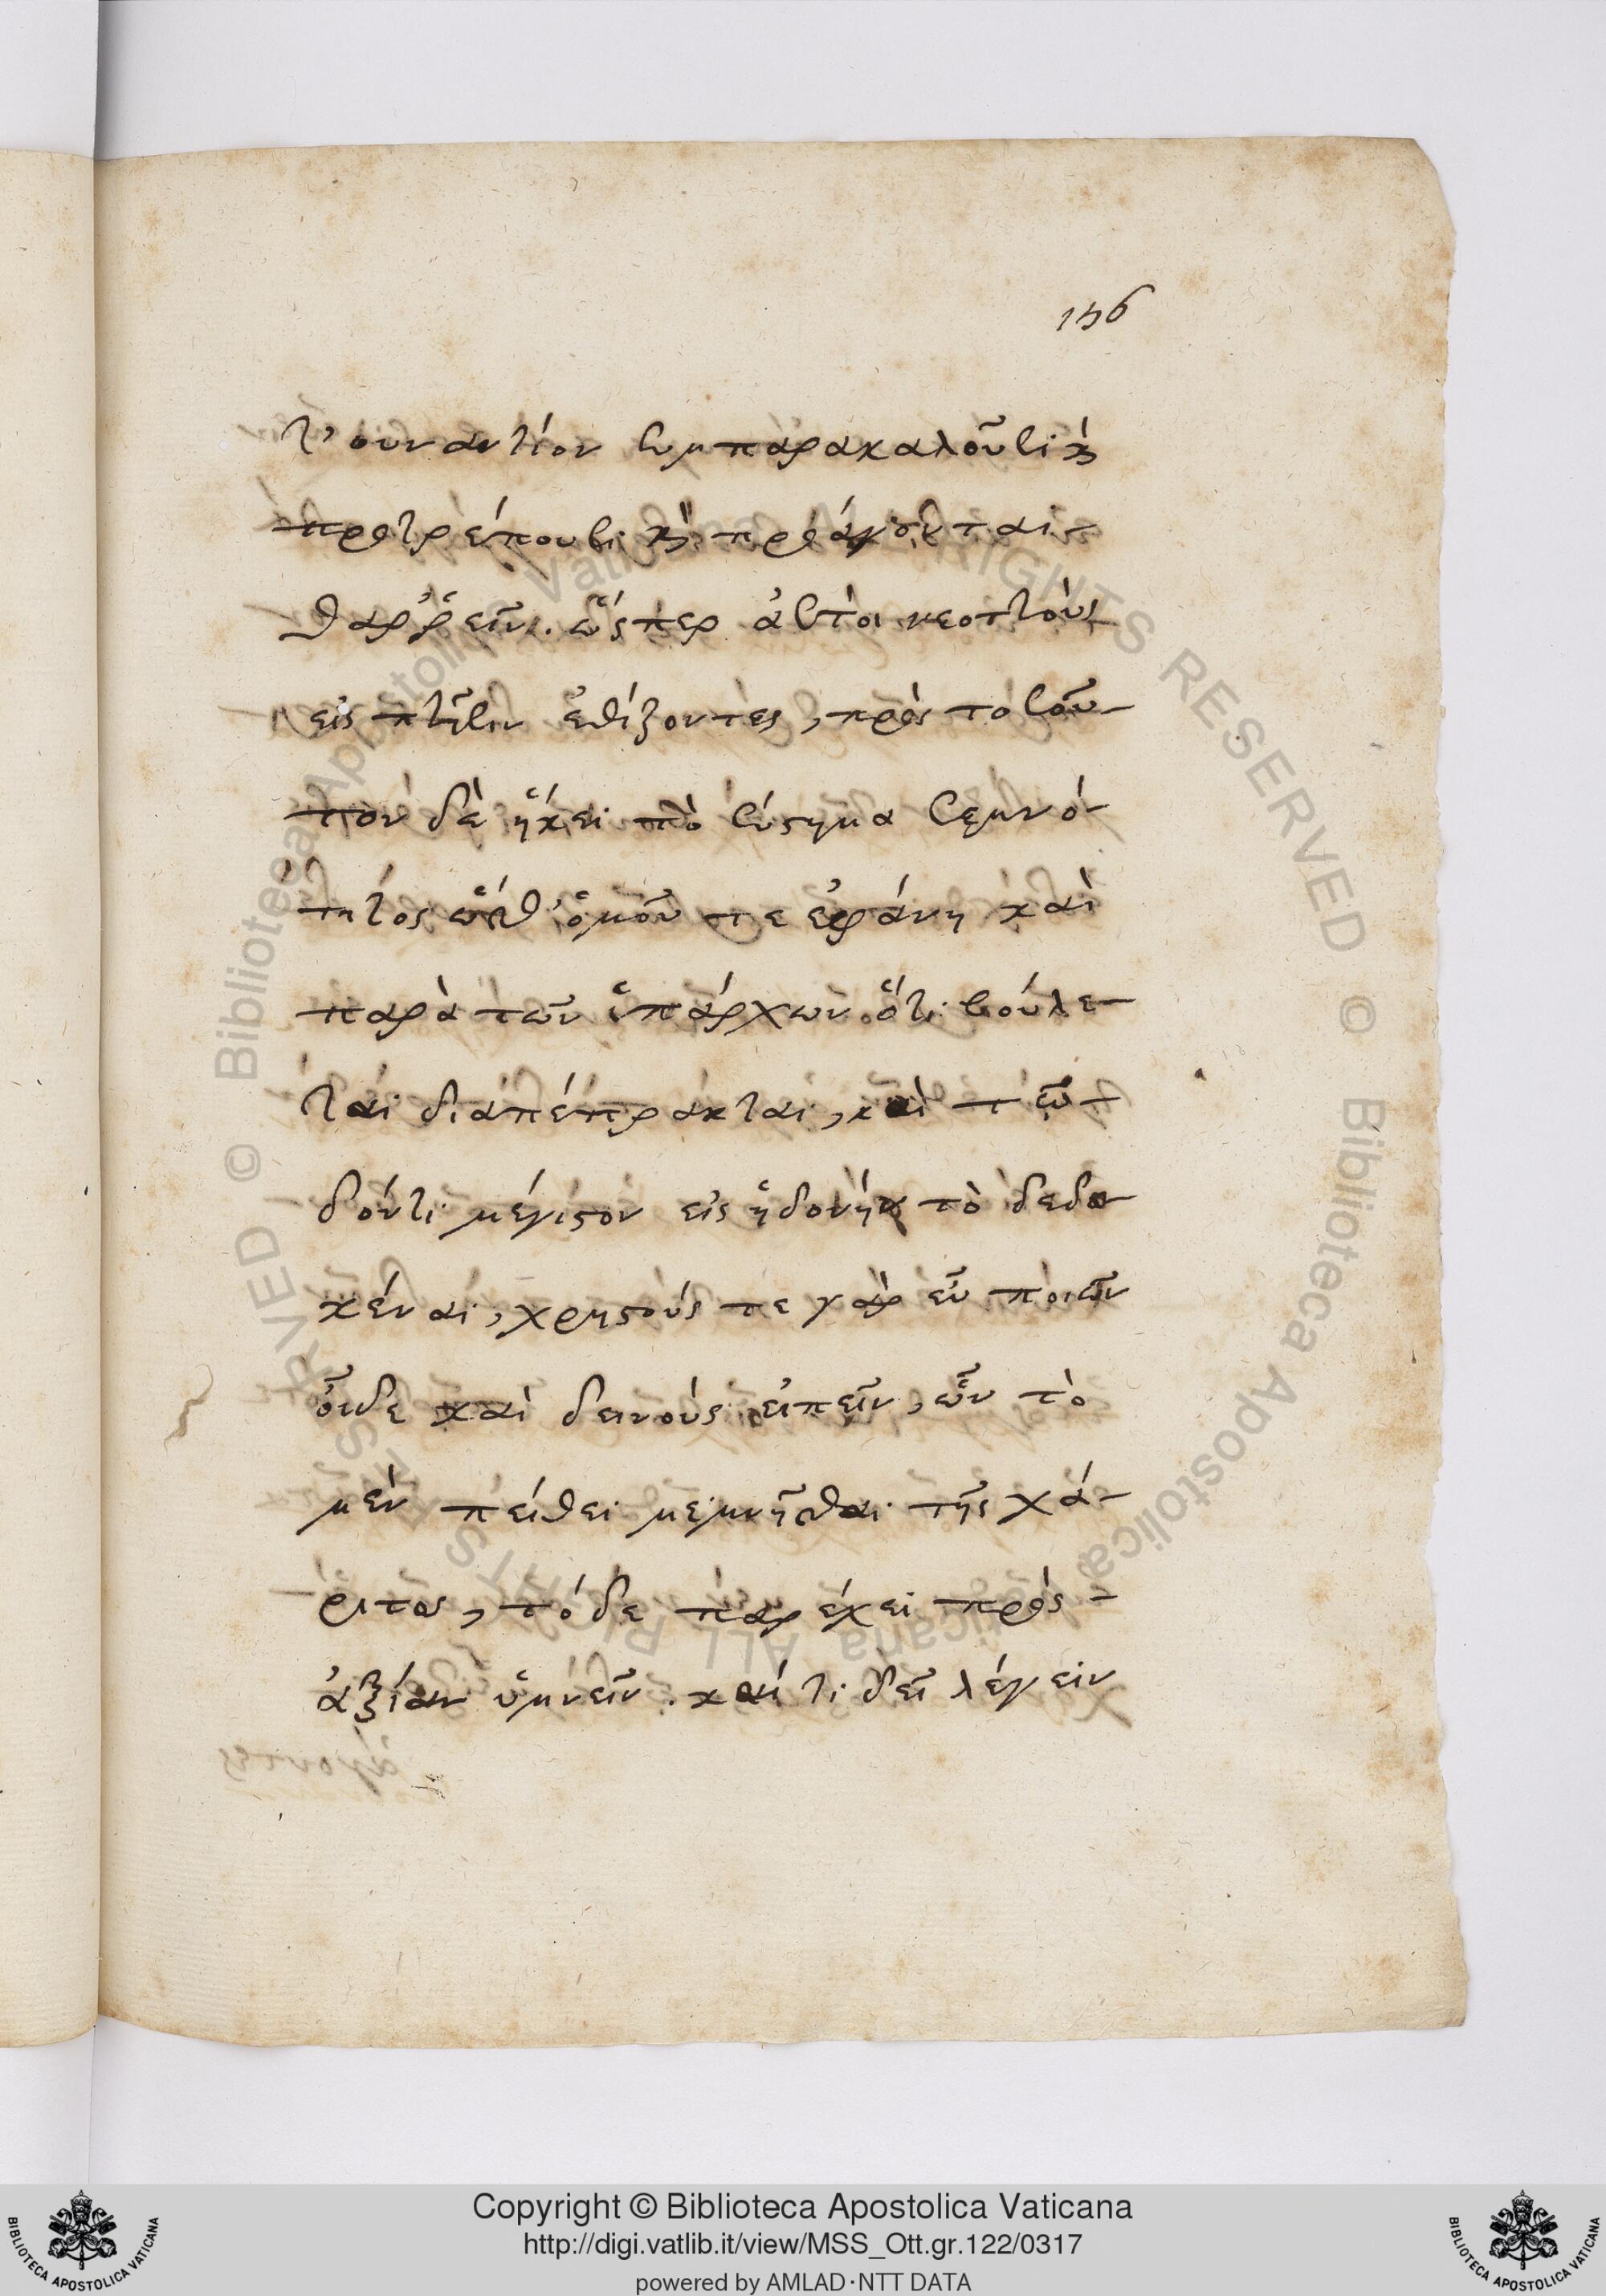 156
τ' ουναντίον συμπαρακαλοῦσι καὶ
προτρέπουσι καὶ προάγονται
θαῤῥεῖν. ὥσπερ ἀετοὶ νεοττοὺς
εἰς πτῆσιν ἐθίζοντες, πρὸς τοσοῦ-
τον δὲ ἥκει τὸ σύστημα σεμνό-
τητος ὥσθ' ὁμοῦ τε ἐφάνη καὶ
παρὰ τῶν ὑπάρχων ὅτι βούλε-
ται διαπέπρακται, καὶ τῶ
δόντι μέγιστον εἰς ἡδονὴν τὸ δεδω-
κέναι, χρηστούς τε γὰρ εὖ ποιῶν
οἶδε καὶ δεινοὺς εἰπεῖν, ὧν τὸ
μὲν πείθει μεμνῆσθαι τῆς χά-
ριτος, τό δε παρέχει πρὸς
ἀξίαν ὑμνεῖν. καί τι δεῖ λέγειν
Copyright © Biblioteca Apostolica Vaticana
http://digi.vatlib.it/view/MSS_Ott.gr.122/0317
powered by AMLAD·NTT DATA
BIBLIOTECA APOSTOLICA VATICANA
BIBLIOTECA APOSTOLICA VATICANA
© Biblioteca Apostolica Vaticana ALL RIGHTS RESERVED © Biblioteca Apostolica Vaticana ALL RIGHTS RESERVED